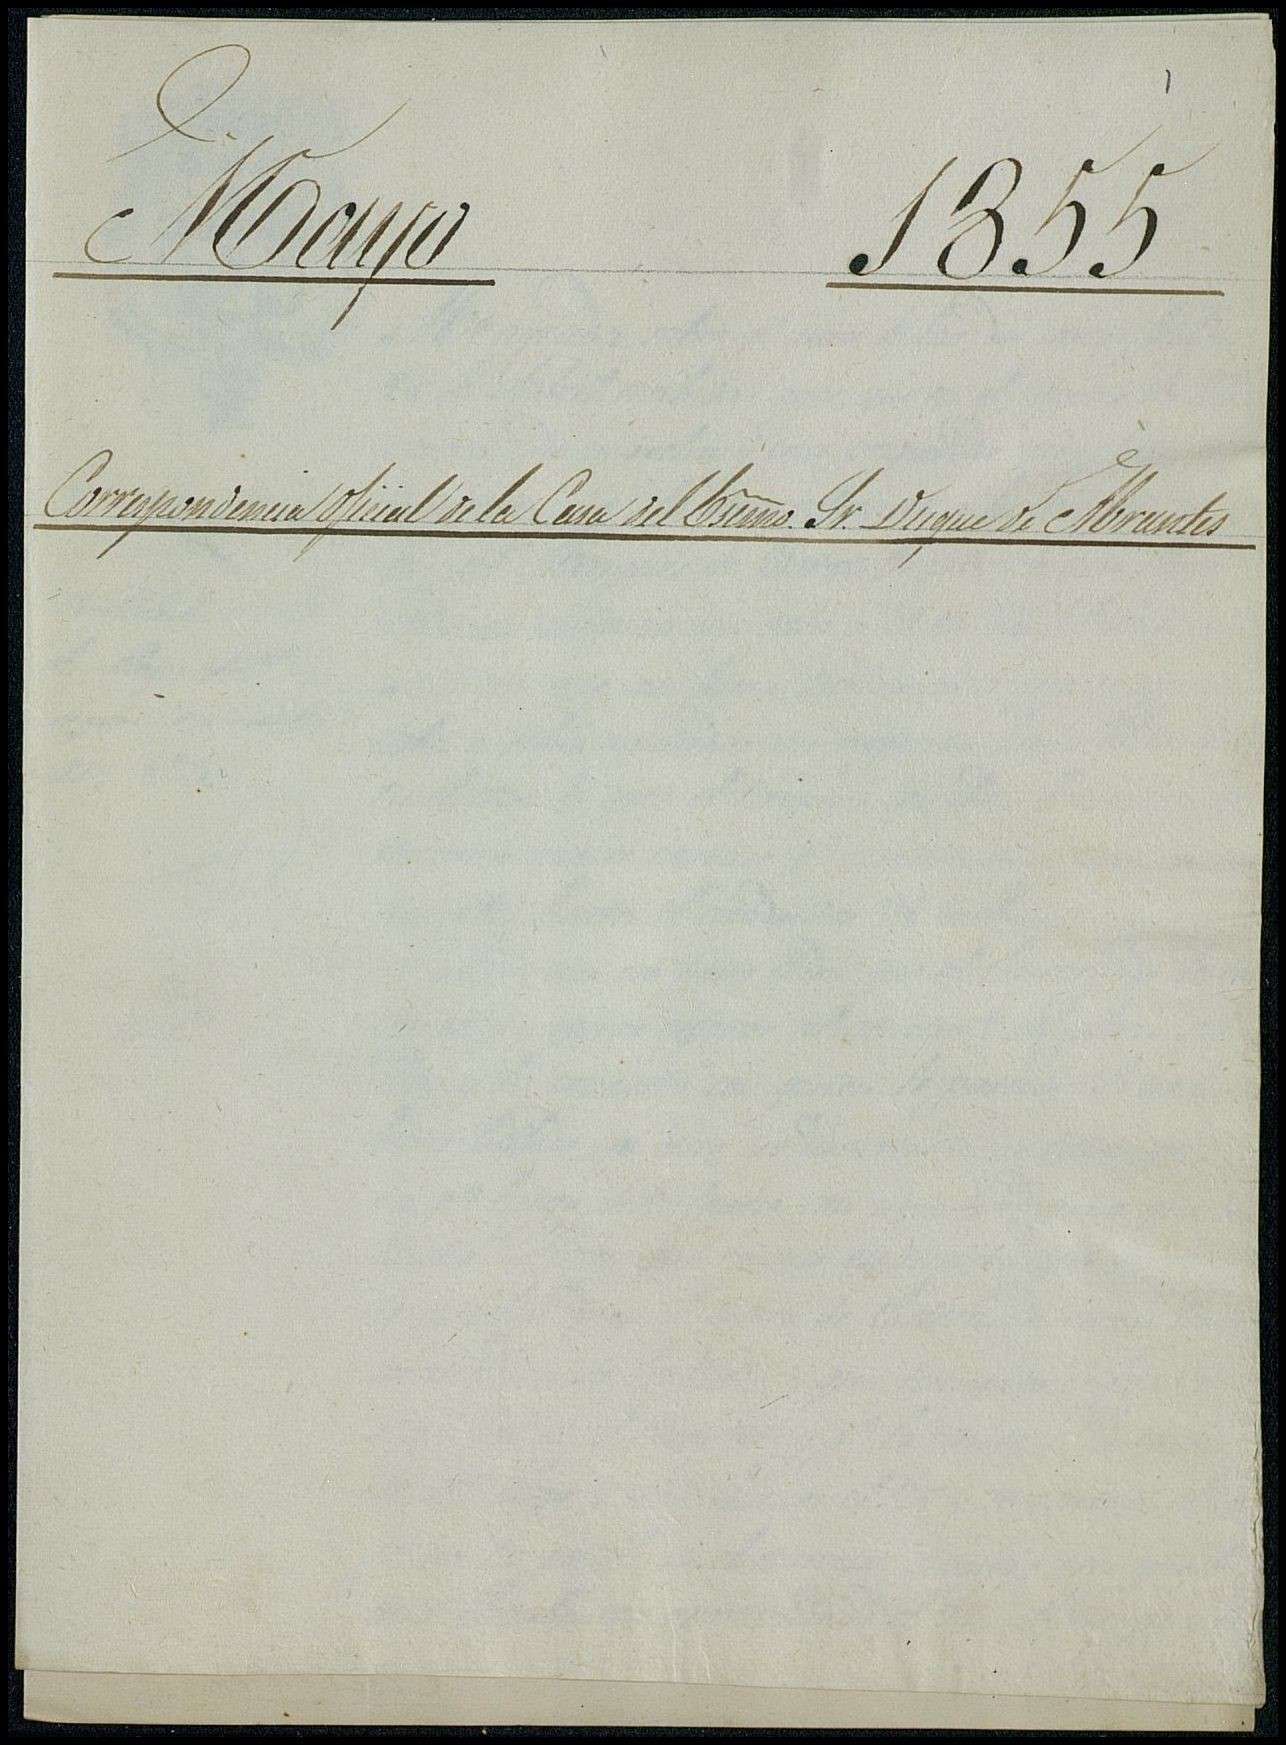 Mayo 1855
Correspondencia oficial de la Casa del Esmo. Sr. Duque de Abrantes